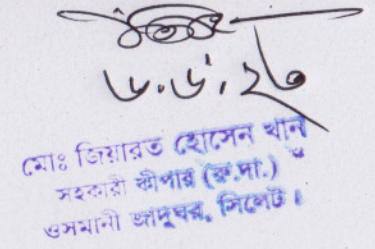 ৬.৬.২৩
মোঃ জিয়ারত হোসেন খান
সহকারী কীপার (রু.দা.)
ওসমানী জাদুঘর, সিলেট।